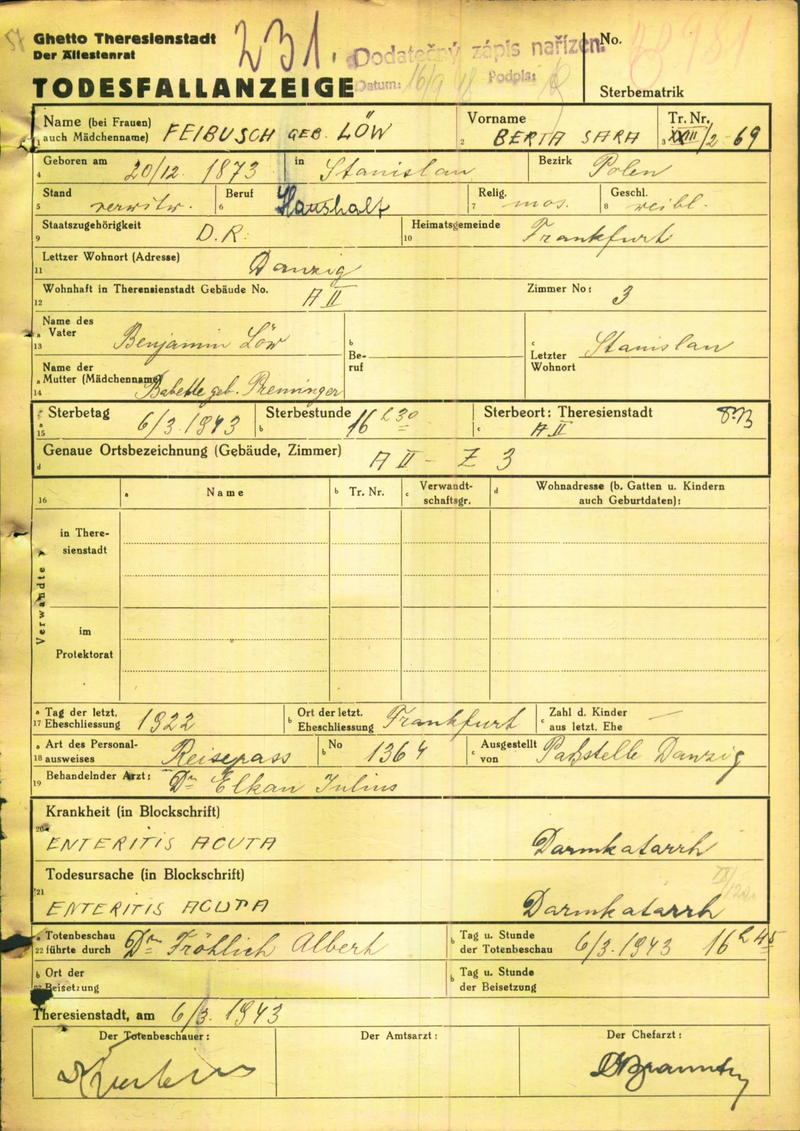 Ghetto Theresienstadt
Der Ältestenrat
231.
Dodatečný zápis nařízen:
Datum: 16/9 48 Podpis:
No.
TODESFALLANZEIGE
Sterbematrik
Name (bei Frauen) auch Mädchenname) FEIBUSCH GEB. LÖW
1
Vorname BERTA SARA
2
Tr. Nr. XXIII/2-69
3
Geboren am 20/12. 1873 in Stanislau Bezirk Polen
4
Stand verwitw. Beruf Haushalt Relig. mos. Geschl. weibl.
5 6 7 8
Staatszugehörigkeit D.R. Heimatsgemeinde Frankfurt
9 10
Lettzer Wohnort (Adresse) Danzig
11
Wohnhaft in Therensienstadt Gebäude No. A II Zimmer No: 3
12
Name des Vater Benjamin Löw
a 13
b Beruf
c Letzter Wohnort Stanislau
Name der Mutter (Mädchenname) Babette geb. Preminger
a 14
Sterbetag 6/3. 1943 Sterbestunde 16 h 30 Sterbeort: Theresienstadt A II
a 15 b c
Genaue Ortsbezeichnung (Gebäude, Zimmer) A II - Z 3
d
16 a Name b Tr. Nr. c Verwandtschaftsgr. d Wohnadresse (b. Gatten u. Kindern auch Geburtdaten):
Verwandte
in Theresienstadt
im Protektorat
a 17 Tag der letzt. Eheschliessung 1922 b Ort der letzt. Eheschliessung Frankfurt c Zahl d. Kinder aus letzt. Ehe —
a 18 Art des Personalausweises Reisepass b No 1364 c Ausgestellt von Paßstelle Danzig
19 Behandelnder Arzt: Dr. Elkan Julius
Krankheit (in Blockschrift)
20 ENTERITIS ACUTA Darmkatarrh
Todesursache (in Blockschrift)
21 ENTERITIS ACUTA Darmkatarrh
a 22 Totenbeschau führte durch Dr. Fröhlich Albert b Tag u. Stunde der Totenbeschau 6/3. 1943 16 h 45
b Ort der Beisetzung b Tag u. Stunde der Beisetzung
Theresienstadt, am 6/3. 1943
Der Totenbeschauer: Der Amtsarzt: Der Chefarzt: